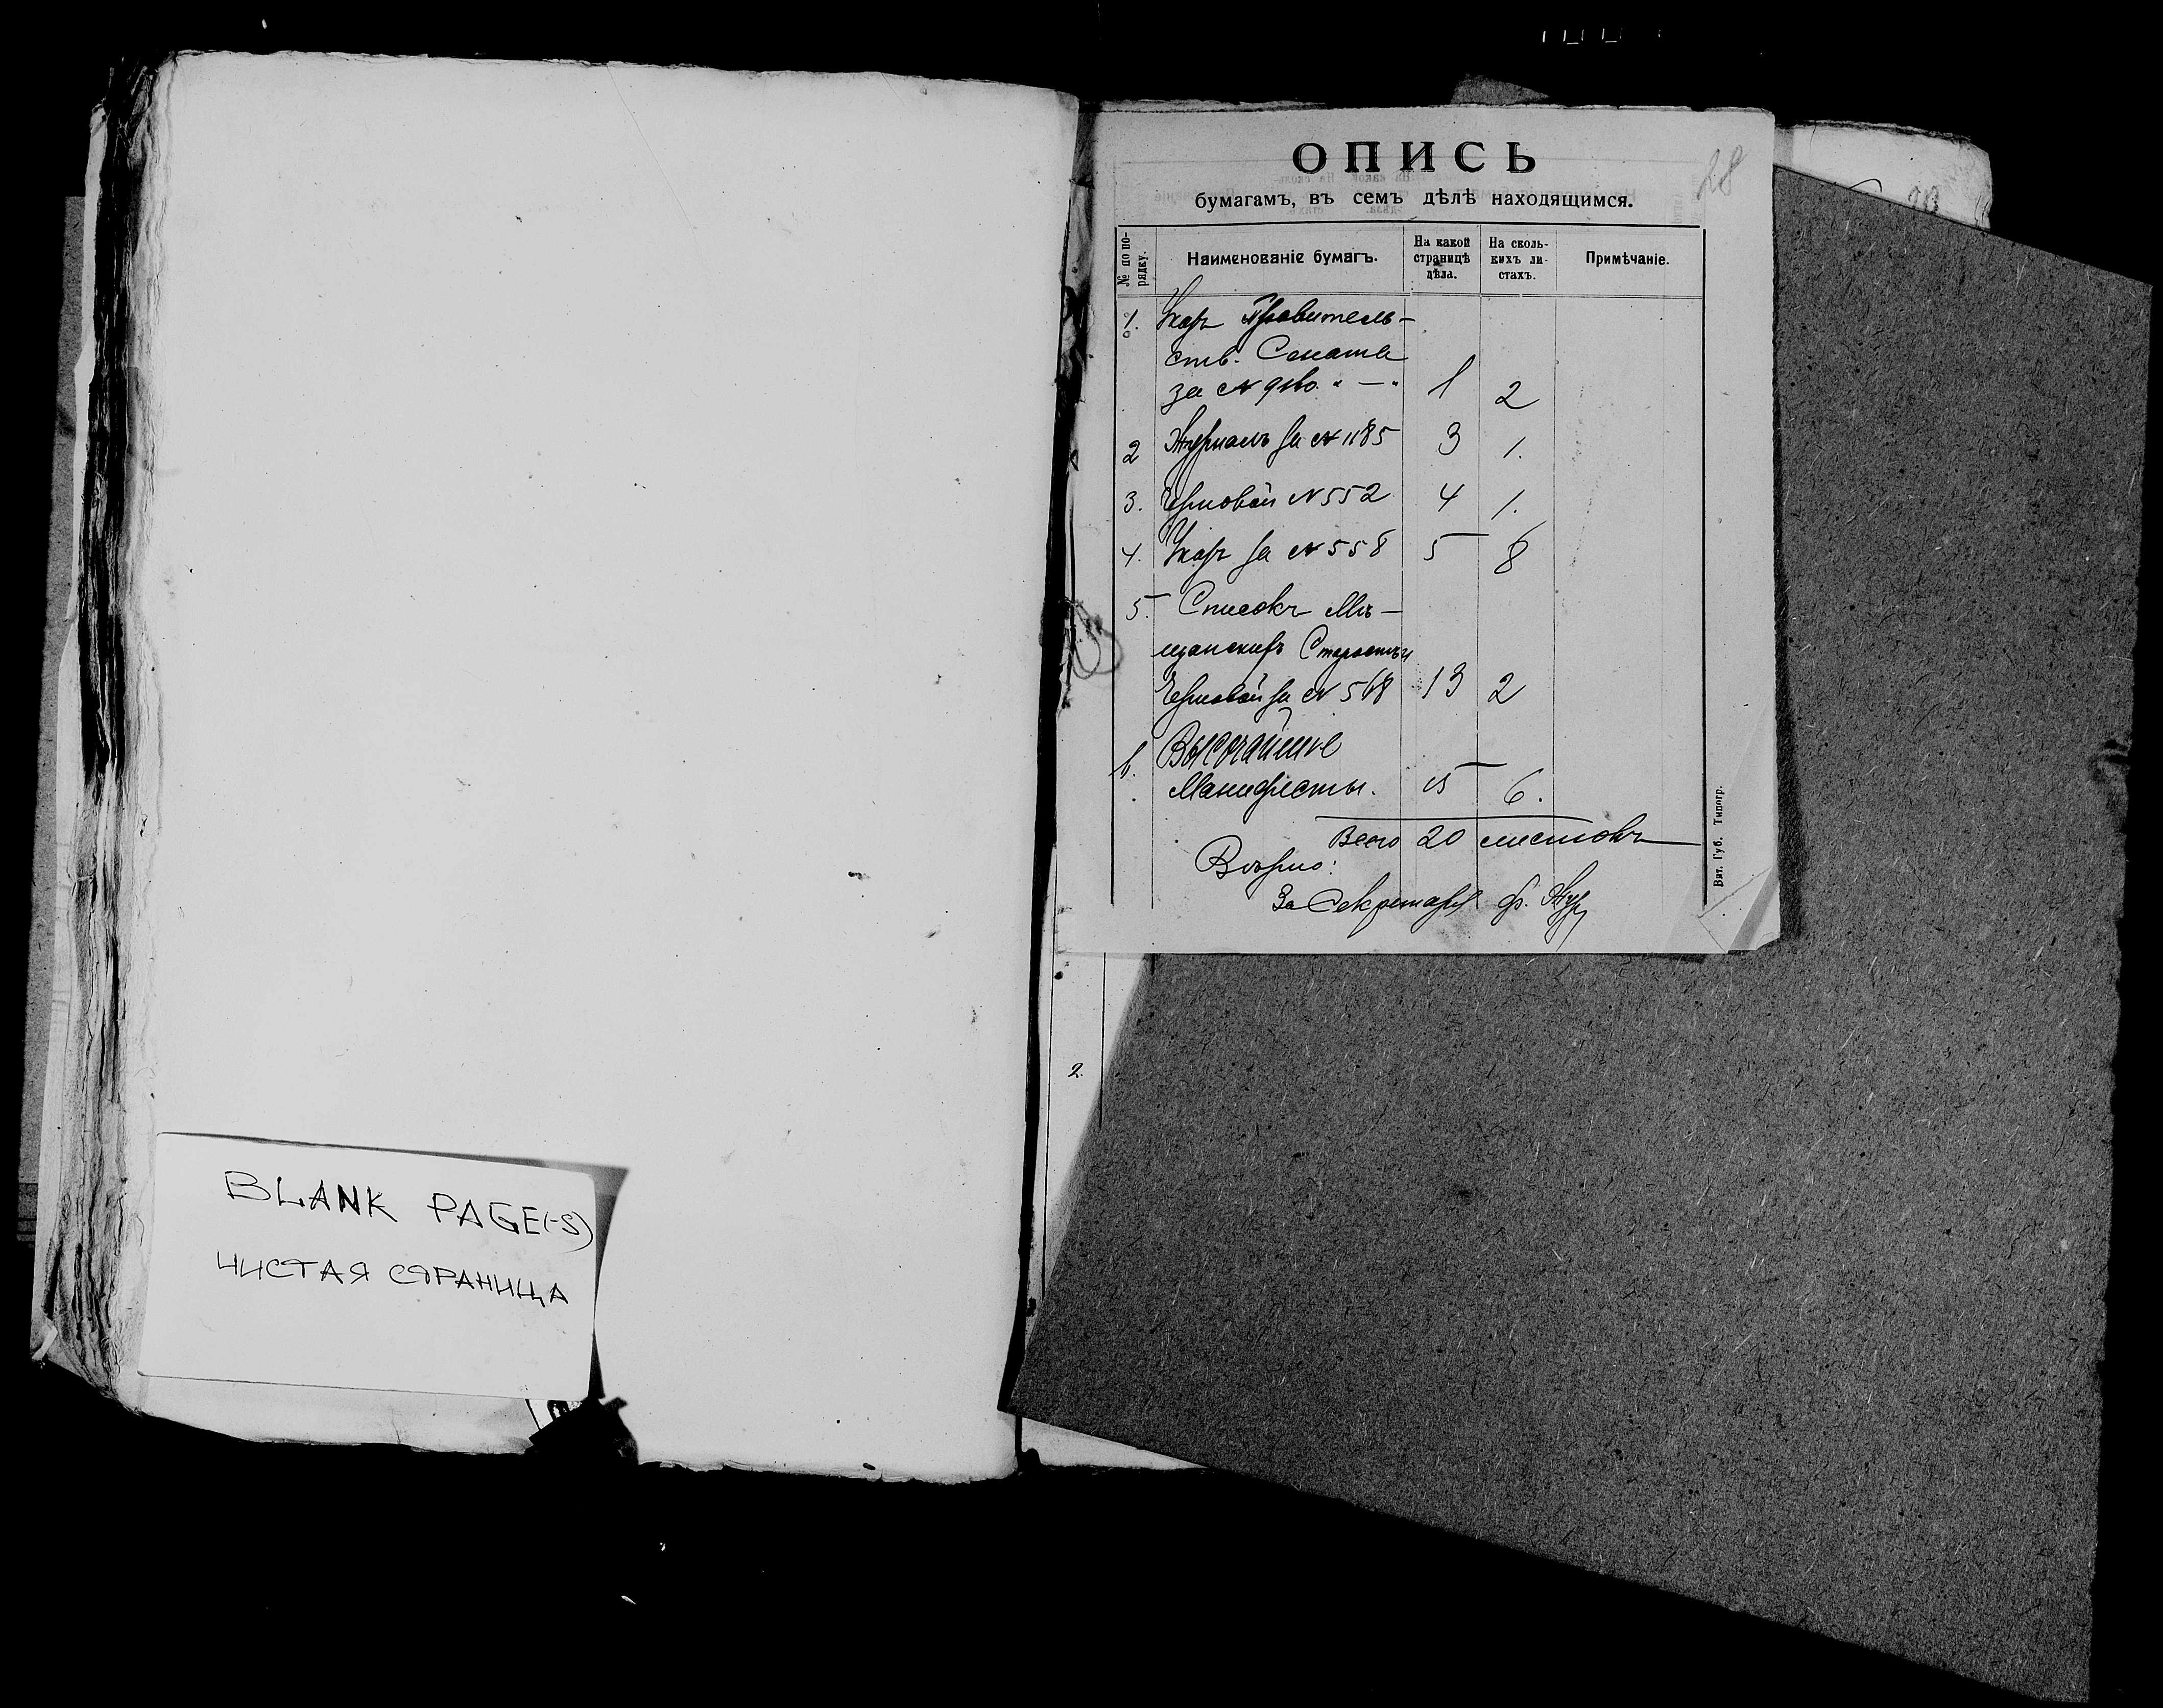 BLANK PAGE(-S)
ЧИСТАЯ СТРАНИЦА
28
ОПИСЬ
бумагамъ, въ семъ дѣлѣ находящимся.
№ по по-
рядку.
Наименованіе бумагъ.
На какой
страницѣ
дѣла.
На сколь-
кихъ ли-
стахъ.
Примѣчаніе.
1. Указъ Правитель-
ств. Сената
за № 1 2
2 Журналъ за № 1185 3 1.
3. Черновой № 552 4 1.
4. Указъ за № 558 5 8
5. Списокъ Мѣ-
щанскихъ Старостъ и
Черновой за № 568 13 2
6. Высочайшіе
Манифесты. 15 6.
Всего 20 листовъ
Вѣрно:
За Секретаря
Вят. Губ. Типогр.
2.